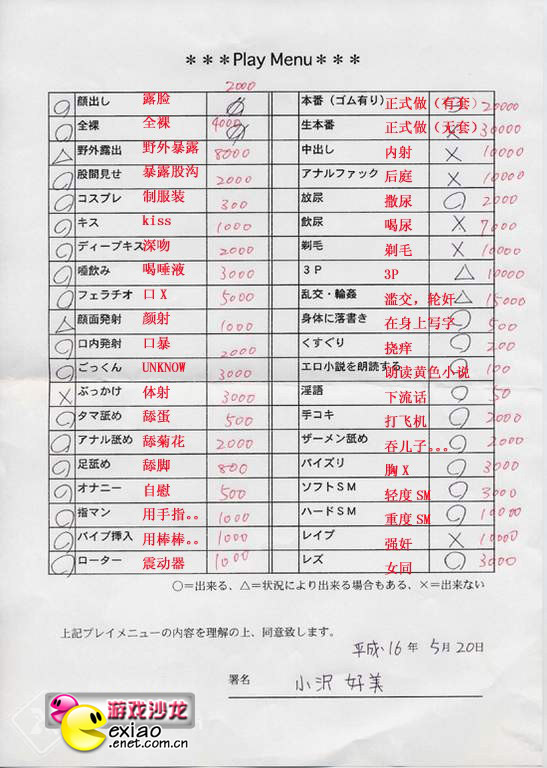 ＊＊＊Play Menu＊＊＊
2000
顔出し 露脸 本番（ゴム有り） 正式做（有套） 20000
全裸 全裸 4000 生本番 正式做（无套） 30000
△ 野外露出 野外暴露 8000 中出し 内射 × 10000
○ 股間見せ 暴露股沟 2000 アナルファック 后庭 × 10000
○ コスプレ 制服装 300 放尿 撒尿 ○ 2000
○ キス kiss 1000 飲尿 喝尿 × 7000
○ ディープキス 深吻 2000 剃毛 剃毛 × 10000
○ 唾飲み 喝唾液 3000 3P 3P △ 10000
○ フェラチオ 口X 5000 乱交・輪姦 滥交，轮奸 △ 15000
△ 顔面発射 颜射 1000 身体に落書き 在身上写字 ○ 500
○ 口内発射 口暴 2000 くすぐり 挠痒 ○ 200
○ ごっくん UNKNOW 3000 エロ小説を朗読する 朗读黄色小说 ○ 100
× ぶっかけ 体射 3000 淫語 下流话 ○ 50
○ タマ舐め 舔蛋 500 手コキ 打飞机 ○ 2000
○ アナル舐め 舔菊花 2000 ザーメン舐め 吞儿子。。。 ○ 2000
○ 足舐め 舔脚 800 パイズリ 胸X ○ 3000
○ オナニー 自慰 500 ソフトSM 轻度SM ○ 3000
○ 指マン 用手指。。 1000 ハードSM 重度SM ○ 10000
○ バイブ挿入 用棒棒。。 1000 レイプ 强奸 × 10000
○ ローター 震动器 1000 レズ 女同 ○ 3000
○=出来る、△=状況により出来る場合もある、×=出来ない
上記プレイメニューの内容を理解の上、同意致します。
平成16年 5月20日
署名 小沢 好美
游戏沙龙
exiao
.enet.com.cn